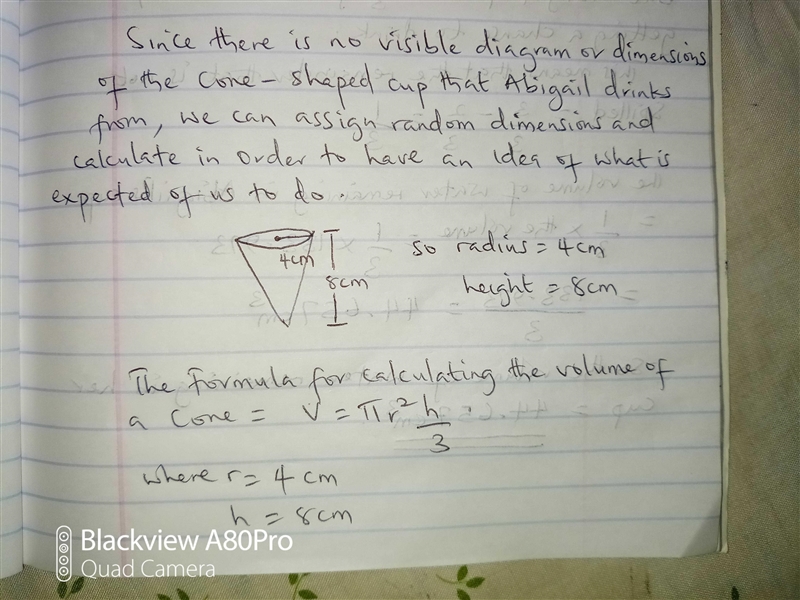 Since there is no visible diagram or dimensions
of the Cone - shaped cup that Abigail drinks
from, we can assign random dimensions and
calculate in order to have an idea of what is
expected of us to do.
4cm
8cm
so radius = 4cm
height = 8cm
The formula for calculating the volume of
a Cone = V = πr² h/3
where r = 4 cm
h = 8cm
Blackview A80Pro
Quad Camera